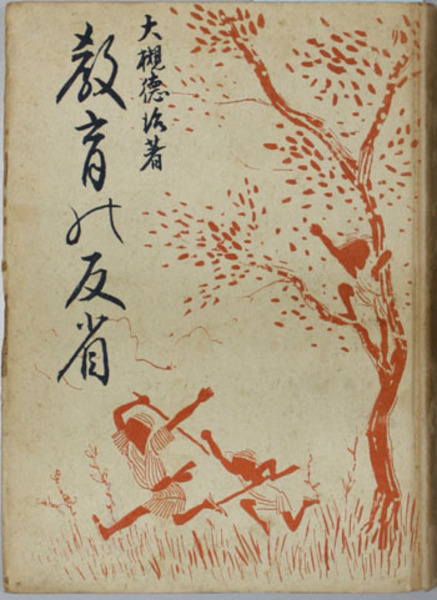 大槻德治著
教育の反省